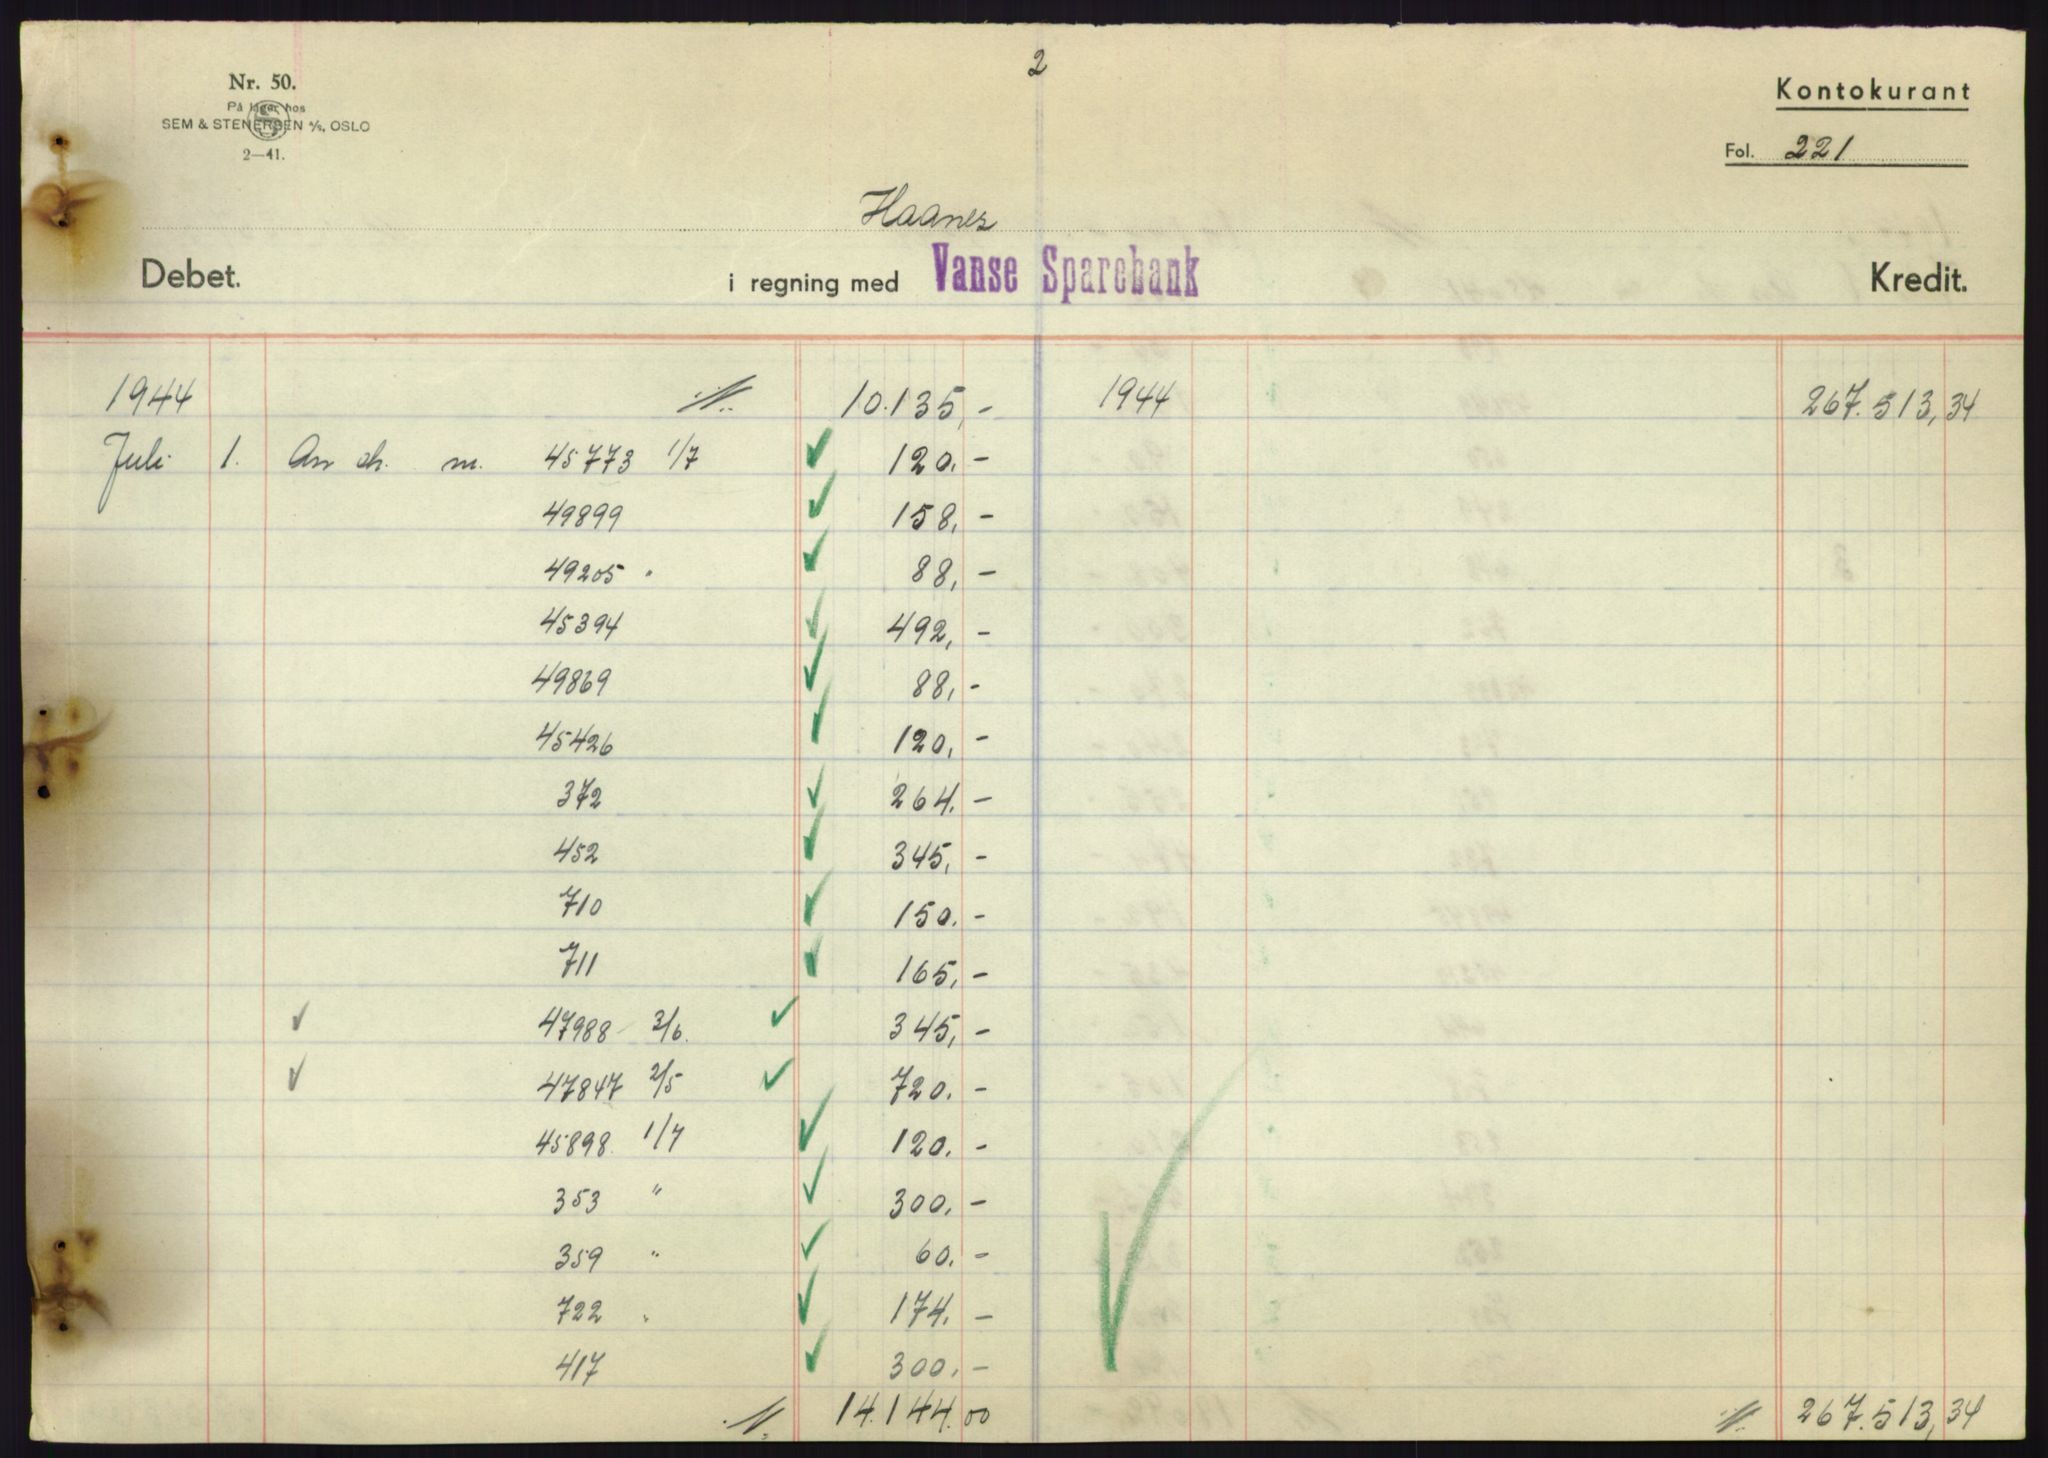 2
Nr. 50.
På lager hos
SEM & STENERSEN A/S, OSLO
2—41.
Kontokurant
Fol. 221
Haanes
Debet. i regning med Vanse Sparebank Kredit.
1944 10.135,- 1944 267.513,34
Juli 1. An ch. nr. 45773 1/7 120.-
49899 158,-
49205 " 88,-
45394 492,-
49869 88,-
45426 120,-
372 264.-
452 345,-
710 150.-
711 165,-
47988 3/6. 345,-
47847 2/5 720.-
45898 1/7 120.-
353 " 300.-
359 " 60.-
722 " 174.-
417 300.-
14.144.00 267.513,34